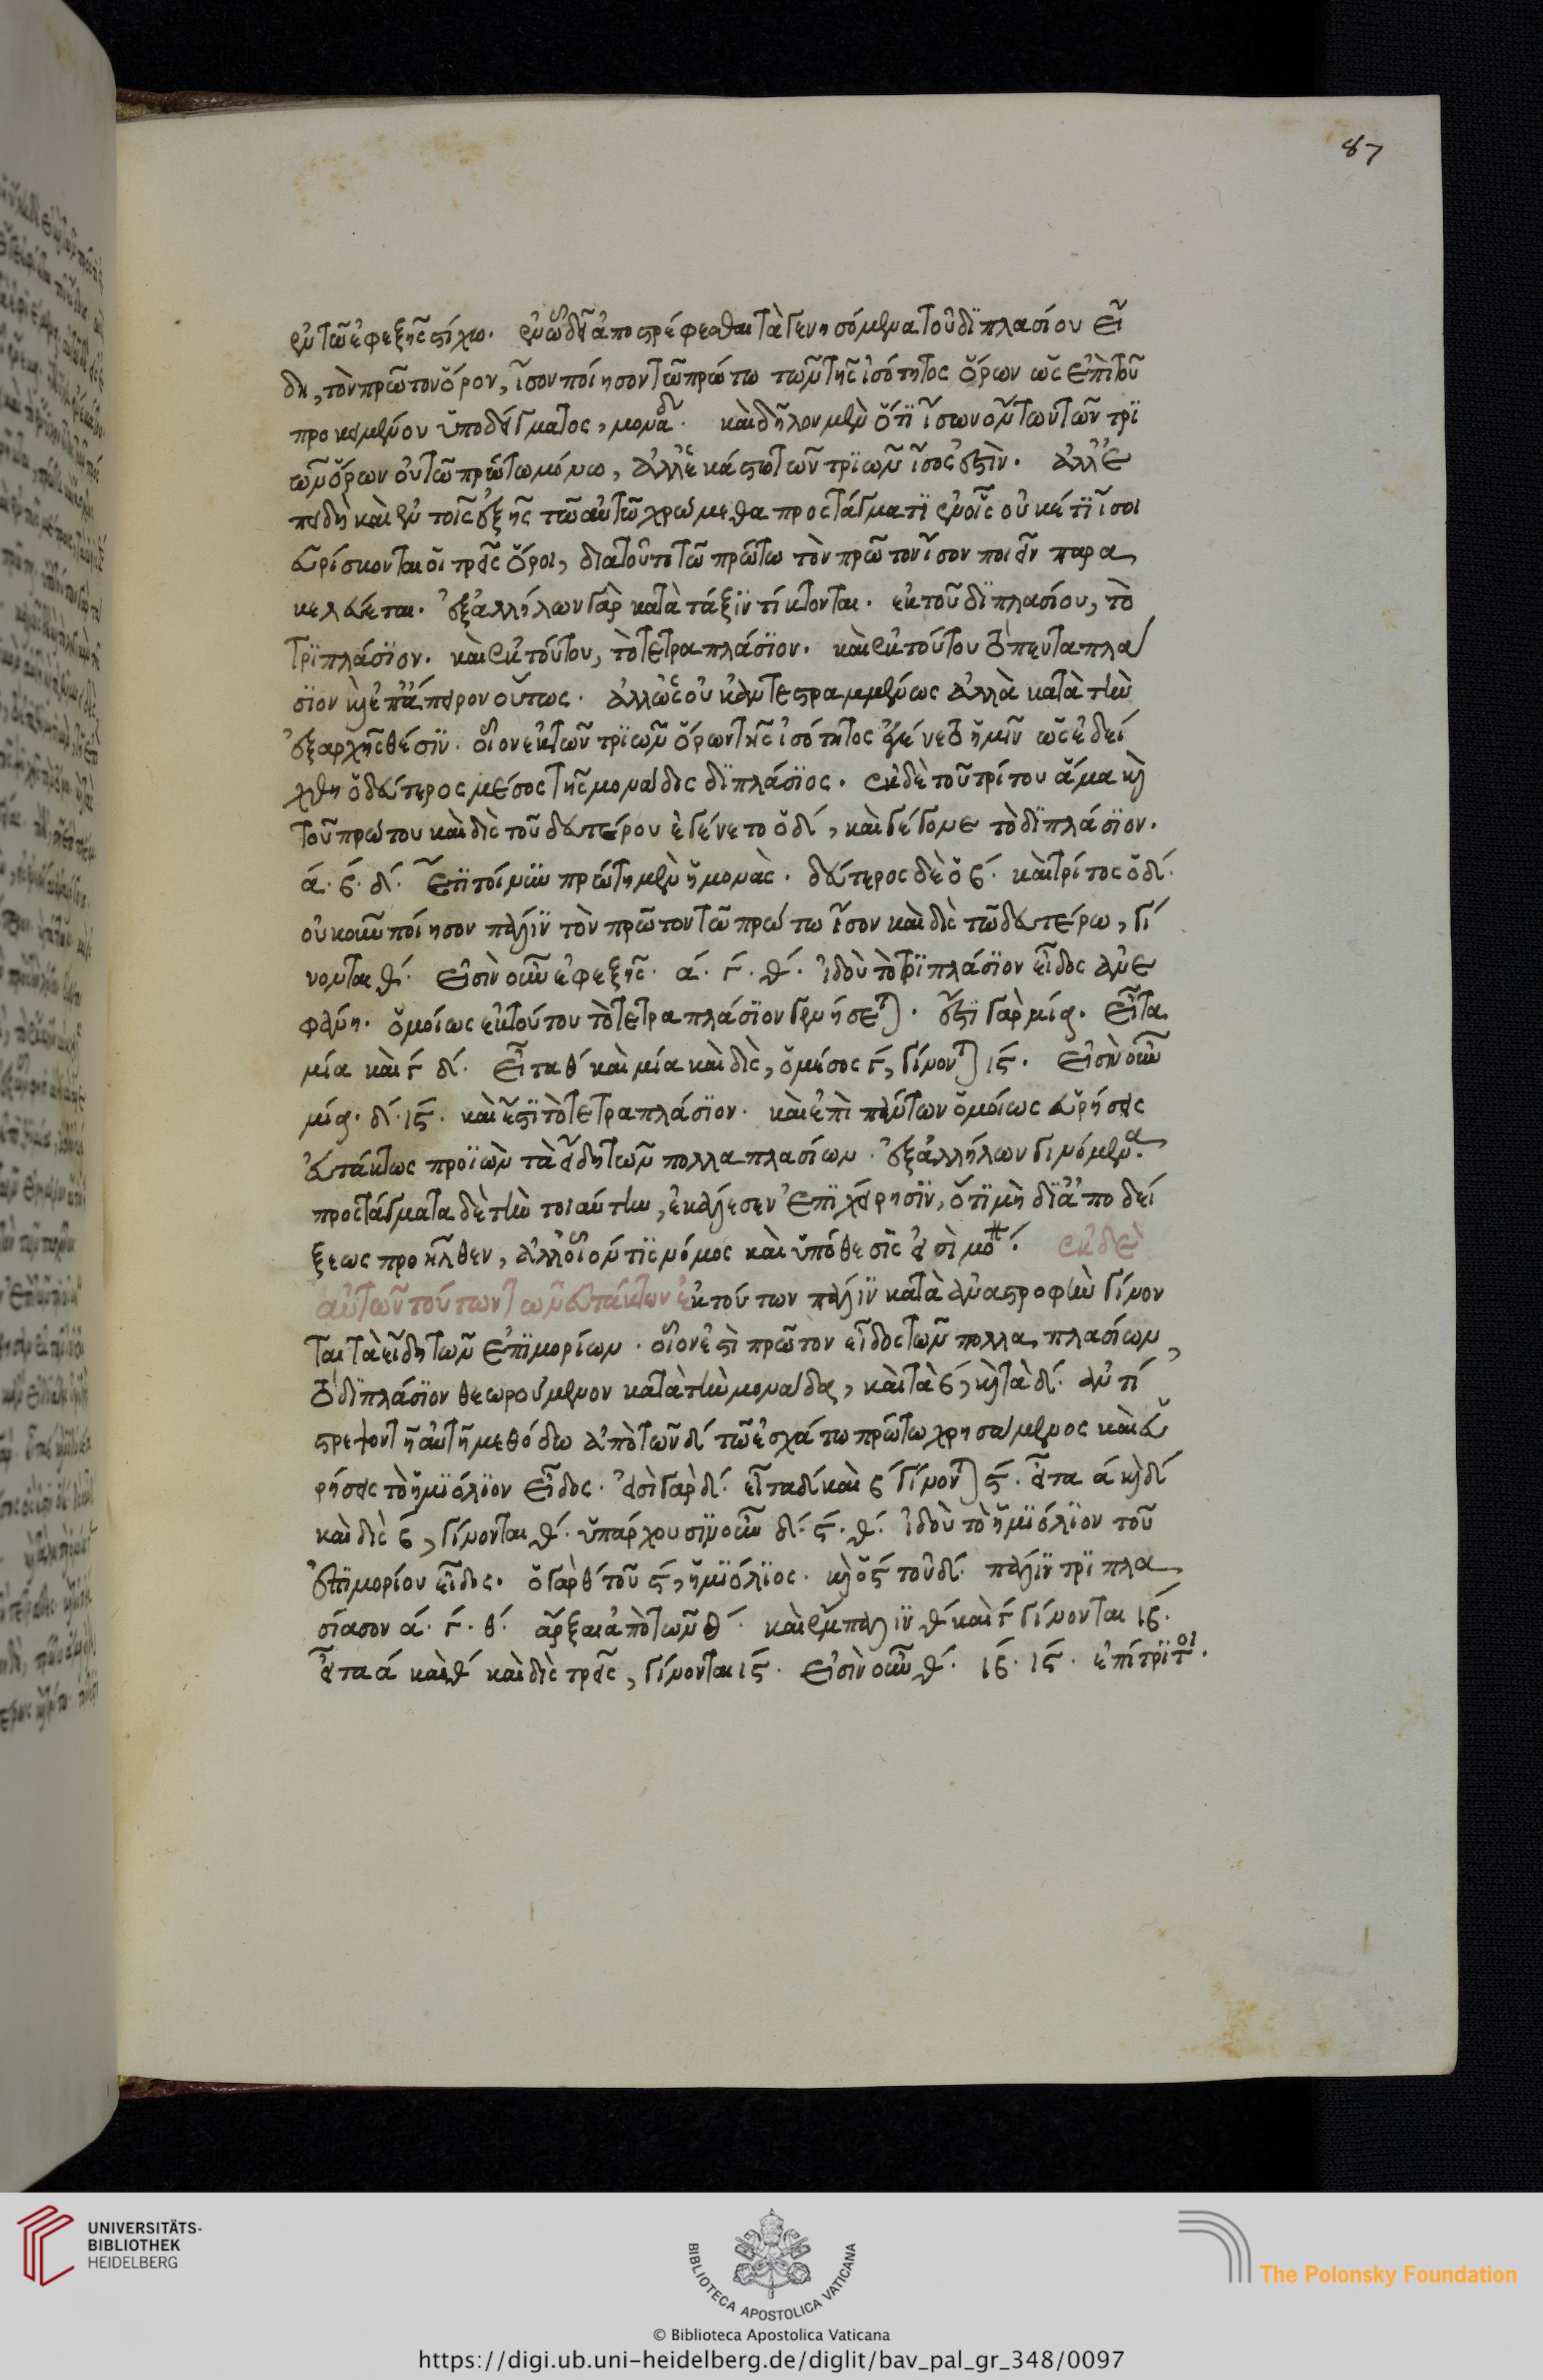 87
ἐν τῷ ἐφεξῆς στίχῳ. ἐν ᾧ δεῖ ἀποστρέφεσθαι τὰ γενησόμενα τοῦ διπλασίου εἴ
δη, τὸν πρῶτον ὅρον, ἴσον ποίησον τῷ πρώτῳ τῶν τῆς ἰσότητος ὅρων ὡς ἐπὶ τοῦ
προκειμένου ὑποδείγματος, καὶ δῆλον μὲν ὅτι ἴσων ὄντων τῶν τρι
ῶν ὅρων οὐ τῷ πρώτῳ μόνῳ, ἀλλ' ἑκάστῳ τῶν τριῶν ἴσος ἐστὶν. ἀλλ' ἐ
πειδὴ καὶ ἐν τοῖς ἑξῆς τῷ αὐτῷ χρώμεθα προστάγματι ἐν οἷς οὐκέτι ἴσοι
εὑρίσκονται οἱ τρεῖς ὅροι, διατοῦτο τῷ πρώτῳ τὸν πρῶτον ἴσον ποιεῖν παρα
κελεύεται. ἐξ ἀλλήλων γὰρ κατὰ τάξιν τίκτονται. ἐκ τοῦ διπλασίου, τὸ
τριπλάσιον. καὶ ἐκ τούτου, τὸ τετραπλάσιον. καὶ ἐκ τούτου τὸ πενταπλά
σιον καὶ ἐπ' ἄπειρον οὕτως. ἀλλ' ὡς οὐκ ἀντεστραμμένως ἀλλὰ κατὰ τὴν
ἐξαρχῆς θέσιν. οἷον ἐκ τῶν τριῶν ὅρων τῆς ἰσότητος ἐγένετο ἡμῖν ὡς ἐδεί
χθη ὁ δεύτερος μέσος τῆς μονάδος διπλάσιος. ἐκ δὲ τοῦ τρίτου ἅμα καὶ
τοῦ πρώτου καὶ δὶς τοῦ δευτέρου ἐγένετο ὁ δ΄, καὶ γέγονε τὸ διπλάσιον.
α΄. β΄. δ΄. ἔστι τοίνυν πρώτη μὲν ἡ μονὰς. δεύτερος δὲ ὁ β΄. καὶ τρίτος ὁ δ΄.
οὐκοῦν ποίησον πάλιν τὸν πρῶτον τῷ πρώτῳ ἴσον καὶ δὶς τῷ δευτέρῳ, γί
νονται θ΄. εἰσὶν οὖν ἐφεξῆς. α΄. γ΄. θ΄. ἰδοὺ τὸ τριπλάσιον εἶδος ἀνε
φάνη. ὁμοίως ἐκ τούτου τὸ τετραπλάσιον γεννήσεται. ἔστι γὰρ μία. εἶτα
μία καὶ γ΄ δ΄. εἶτα θ΄ καὶ μία καὶ δὶς, ὁ μέσος γ΄, γίνονται ις΄. εἰσὶν οὖν
μία. δ΄. ις΄. καὶ ἔστι τὸ τετραπλάσιον. καὶ ἐπὶ πάντων ὁμοίως εὑρήσεις
εὐτάκτως προϊὼν τὰ εἴδη τῶν πολλαπλασίων. ἐξ ἀλλήλων γινόμενα.
προστάγματα δὲ τὴν τοιαύτην, ἐκάλεσεν ἐπιχείρησιν, ὅτι μὴ δι' ἀποδεί
ξεως προῆλθεν, ἀλλ' οἷόν τις νόμος καὶ ὑπόθεσις ἐκ δὲ
αὐτῶν τούτων τῶν εὐτάκτων ἐκ τούτων πάλιν κατὰ ἀναστροφὴν γίνον
ται τὰ εἴδη τῶν ἐπιμορίων. οἷον ἐστὶ πρῶτον εἶδος τῶν πολλαπλασίων,
τὸ διπλάσιον θεωρούμενον κατὰ τὴν μονάδα, καὶ τὰ β΄, καὶ τὰ δ΄. ἀντί
στρεψον τῇ αὐτῇ μεθόδῳ ἀπὸ τῶν δ΄ τῷ ἐσχάτῳ πρώτῳ χρησάμενος καὶ εὑ
ρήσεις τὸ ἡμιόλιον εἶδος. εἰσὶ γὰρ δ΄. εἶτα δ΄ καὶ β΄ γίνονται ς΄. εἶτα α΄ καὶ δ΄
καὶ δὶς β΄, γίνονται θ΄. ὑπάρχουσιν οὖν δ΄. ς΄. θ΄. ἰδοὺ τὸ ἡμιόλιον τοῦ
ἐπιμορίου εἶδος. ὁ γὰρ θ΄ τοῦ ς΄, ἡμιόλιος. καὶ ὁ ς΄ τοῦ δ΄. πάλιν τριπλα
σίασον α΄. γ΄. θ΄. ἄρξαι ἀπὸ τῶν θ΄. καὶ ἔμπαλιν θ΄ καὶ γ΄ γίνονται ιβ΄.
εἶτα α΄ καὶ θ΄ καὶ δὶς τρεῖς, γίνονται ις΄. εἰσὶν οὖν θ΄. ιβ΄. ις΄. ἐπίτριτοι.
UNIVERSITÄTS-
BIBLIOTHEK
HEIDELBERG
BIBLIOTECA APOSTOLICA VATICANA
The Polonsky Foundation
© Biblioteca Apostolica Vaticana
https://digi.ub.uni-heidelberg.de/diglit/bav_pal_gr_348/0097